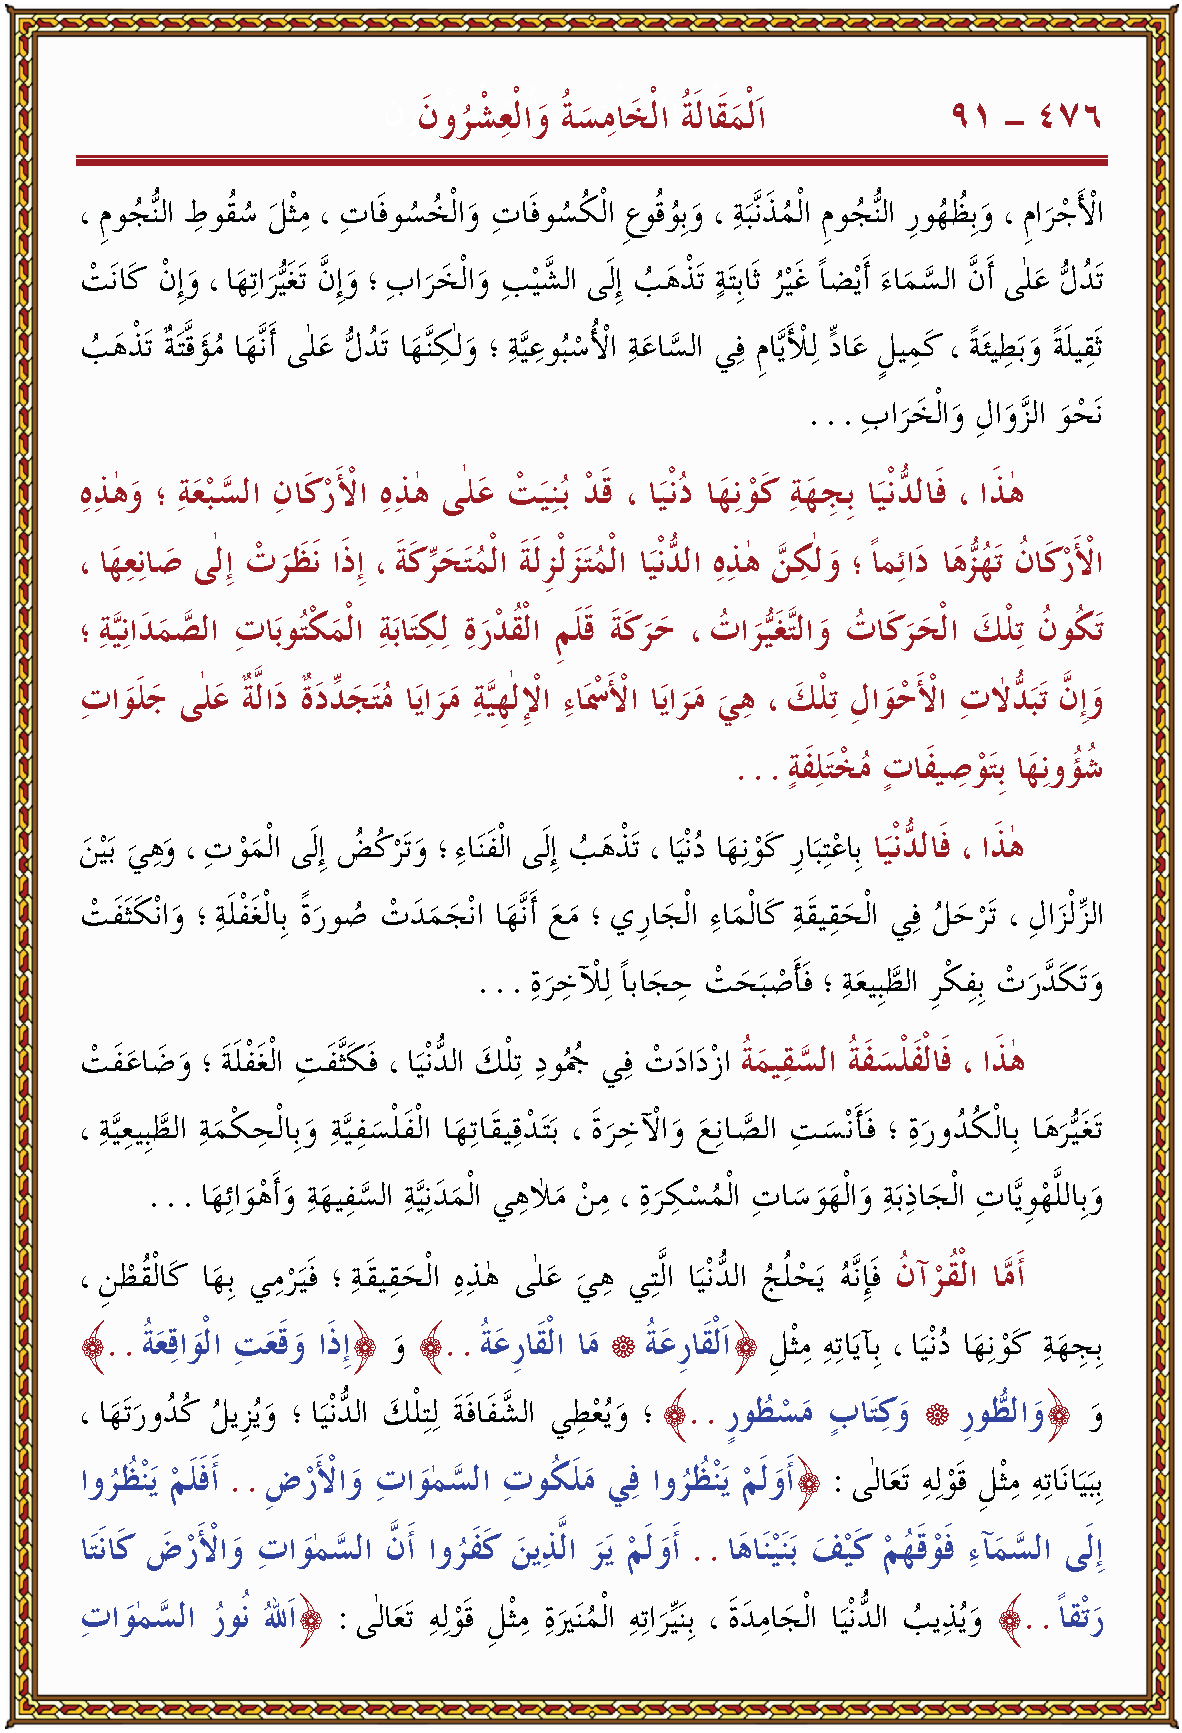 ٤٧٦ – ٩١ اَلْمَقَالَةُ الْخَامِسَةُ وَالْعِشْرُونَ
الْأَجْرَامِ ، وَبِظُهُورِ النُّجُومِ الْمُذَنَّبَةِ ، وَبِوُقُوعِ الْكُسُوفَاتِ وَالْخُسُوفَاتِ ، مِثْلَ سُقُوطِ النُّجُومِ ،
تَدُلُّ عَلٰى أَنَّ السَّمَاءَ أَيْضاً غَيْرُ ثَابِتَةٍ تَذْهَبُ إِلَى الشَّيْبِ وَالْخَرَابِ ؛ وَإِنَّ تَغَيُّرَاتِهَا ، وَإِنْ كَانَتْ
ثَقِيلَةً وَبَطِيئَةً ، كَمِيلٍ عَادٍّ لِلْأَيَّامِ فِي السَّاعَةِ الْأُسْبُوعِيَّةِ ؛ وَلٰكِنَّهَا تَدُلُّ عَلٰى أَنَّهَا مُؤَقَّتَةٌ تَذْهَبُ
نَحْوَ الزَّوَالِ وَالْخَرَابِ . . .
هٰذَا ، فَالدُّنْيَا بِجِهَةِ كَوْنِهَا دُنْيَا ، قَدْ بُنِيَتْ عَلٰى هٰذِهِ الْأَرْكَانِ السَّبْعَةِ ؛ وَهٰذِهِ
الْأَرْكَانُ تَهُزُّهَا دَائِماً ؛ وَلٰكِنَّ هٰذِهِ الدُّنْيَا الْمُتَزَلْزِلَةَ الْمُتَحَرِّكَةَ ، إِذَا نَظَرَتْ إِلٰى صَانِعِهَا ،
تَكُونُ تِلْكَ الْحَرَكَاتُ وَالتَّغَيُّرَاتُ ، حَرَكَةَ قَلَمِ الْقُدْرَةِ لِكِتَابَةِ الْمَكْتُوبَاتِ الصَّمَدَانِيَّةِ ؛
وَإِنَّ تَبَدُّلَاتِ الْأَحْوَالِ تِلْكَ ، هِيَ مَرَايَا الْأَسْمَاءِ الْإِلٰهِيَّةِ مَرَايَا مُتَجَدِّدَةٌ دَالَّةٌ عَلٰى جَلَوَاتِ
شُؤُونِهَا بِتَوْصِيفَاتٍ مُخْتَلِفَةٍ . . .
هٰذَا ، فَالدُّنْيَا بِاعْتِبَارِ كَوْنِهَا دُنْيَا ، تَذْهَبُ إِلَى الْفَنَاءِ ؛ وَتَرْكُضُ إِلَى الْمَوْتِ ، وَهِيَ بَيْنَ
الزِّلْزَالِ ، تَرْحَلُ فِي الْحَقِيقَةِ كَالْمَاءِ الْجَارِي ؛ مَعَ أَنَّهَا انْجَمَدَتْ صُورَةً بِالْغَفْلَةِ ؛ وَانْكَثَفَتْ
وَتَكَدَّرَتْ بِفِكْرِ الطَّبِيعَةِ ؛ فَأَصْبَحَتْ حِجَاباً لِلْآخِرَةِ . . .
هٰذَا ، فَالْفَلْسَفَةُ السَّقِيمَةُ ازْدَادَتْ فِي جُمُودِ تِلْكَ الدُّنْيَا ، فَكَثَّفَتِ الْغَفْلَةَ ؛ وَضَاعَفَتْ
تَغَيُّرَهَا بِالْكُدُورَةِ ؛ فَأَنْسَتِ الصَّانِعَ وَالْآخِرَةَ ، بَتَدْقِيقَاتِهَا الْفَلْسَفِيَّةِ وَبِالْحِكْمَةِ الطَّبِيعِيَّةِ ،
وَبِاللَّهْوِيَّاتِ الْجَاذِبَةِ وَالْهَوَسَاتِ الْمُسْكِرَةِ ، مِنْ مَلَاهِي الْمَدَنِيَّةِ السَّفِيهَةِ وَأَهْوَائِهَا . . .
أَمَّا الْقُرْآنُ فَإِنَّهُ يَحْلُجُ الدُّنْيَا الَّتِي هِيَ عَلٰى هٰذِهِ الْحَقِيقَةِ ؛ فَيَرْمِي بِهَا كَالْقُطْنِ ،
بِجِهَةِ كَوْنِهَا دُنْيَا ، بِآيَاتِهِ مِثْلِ ﴿اَلْقَارِعَةُ ۞ مَا الْقَارِعَةُ . . ﴾ وَ ﴿إِذَا وَقَعَتِ الْوَاقِعَةُ . . ﴾
وَ ﴿وَالطُّورِ ۞ وَكِتَابٍ مَسْطُورٍ . . ﴾ ؛ وَيُعْطِي الشَّفَافَةَ لِتِلْكَ الدُّنْيَا ؛ وَيُزِيلُ كُدُورَتَهَا ،
بِبَيَانَاتِهِ مِثْلِ قَوْلِهِ تَعَالٰى : ﴿أَوَلَمْ يَنْظُرُوا فِي مَلَكُوتِ السَّمٰوَاتِ وَالْأَرْضِ . . أَفَلَمْ يَنْظُرُوا
إِلَى السَّمَآءِ فَوْقَهُمْ كَيْفَ بَنَيْنَاهَا . . أَوَلَمْ يَرَ الَّذِينَ كَفَرُوا أَنَّ السَّمٰوَاتِ وَالْأَرْضَ كَانَتَا
رَتْقاً . . ﴾ وَيُذِيبُ الدُّنْيَا الْجَامِدَةَ ، بِنَيِّرَاتِهِ الْمُنَيِّرَةِ مِثْلِ قَوْلِهِ تَعَالٰى : ﴿اَللهُ نُورُ السَّمٰوَاتِ